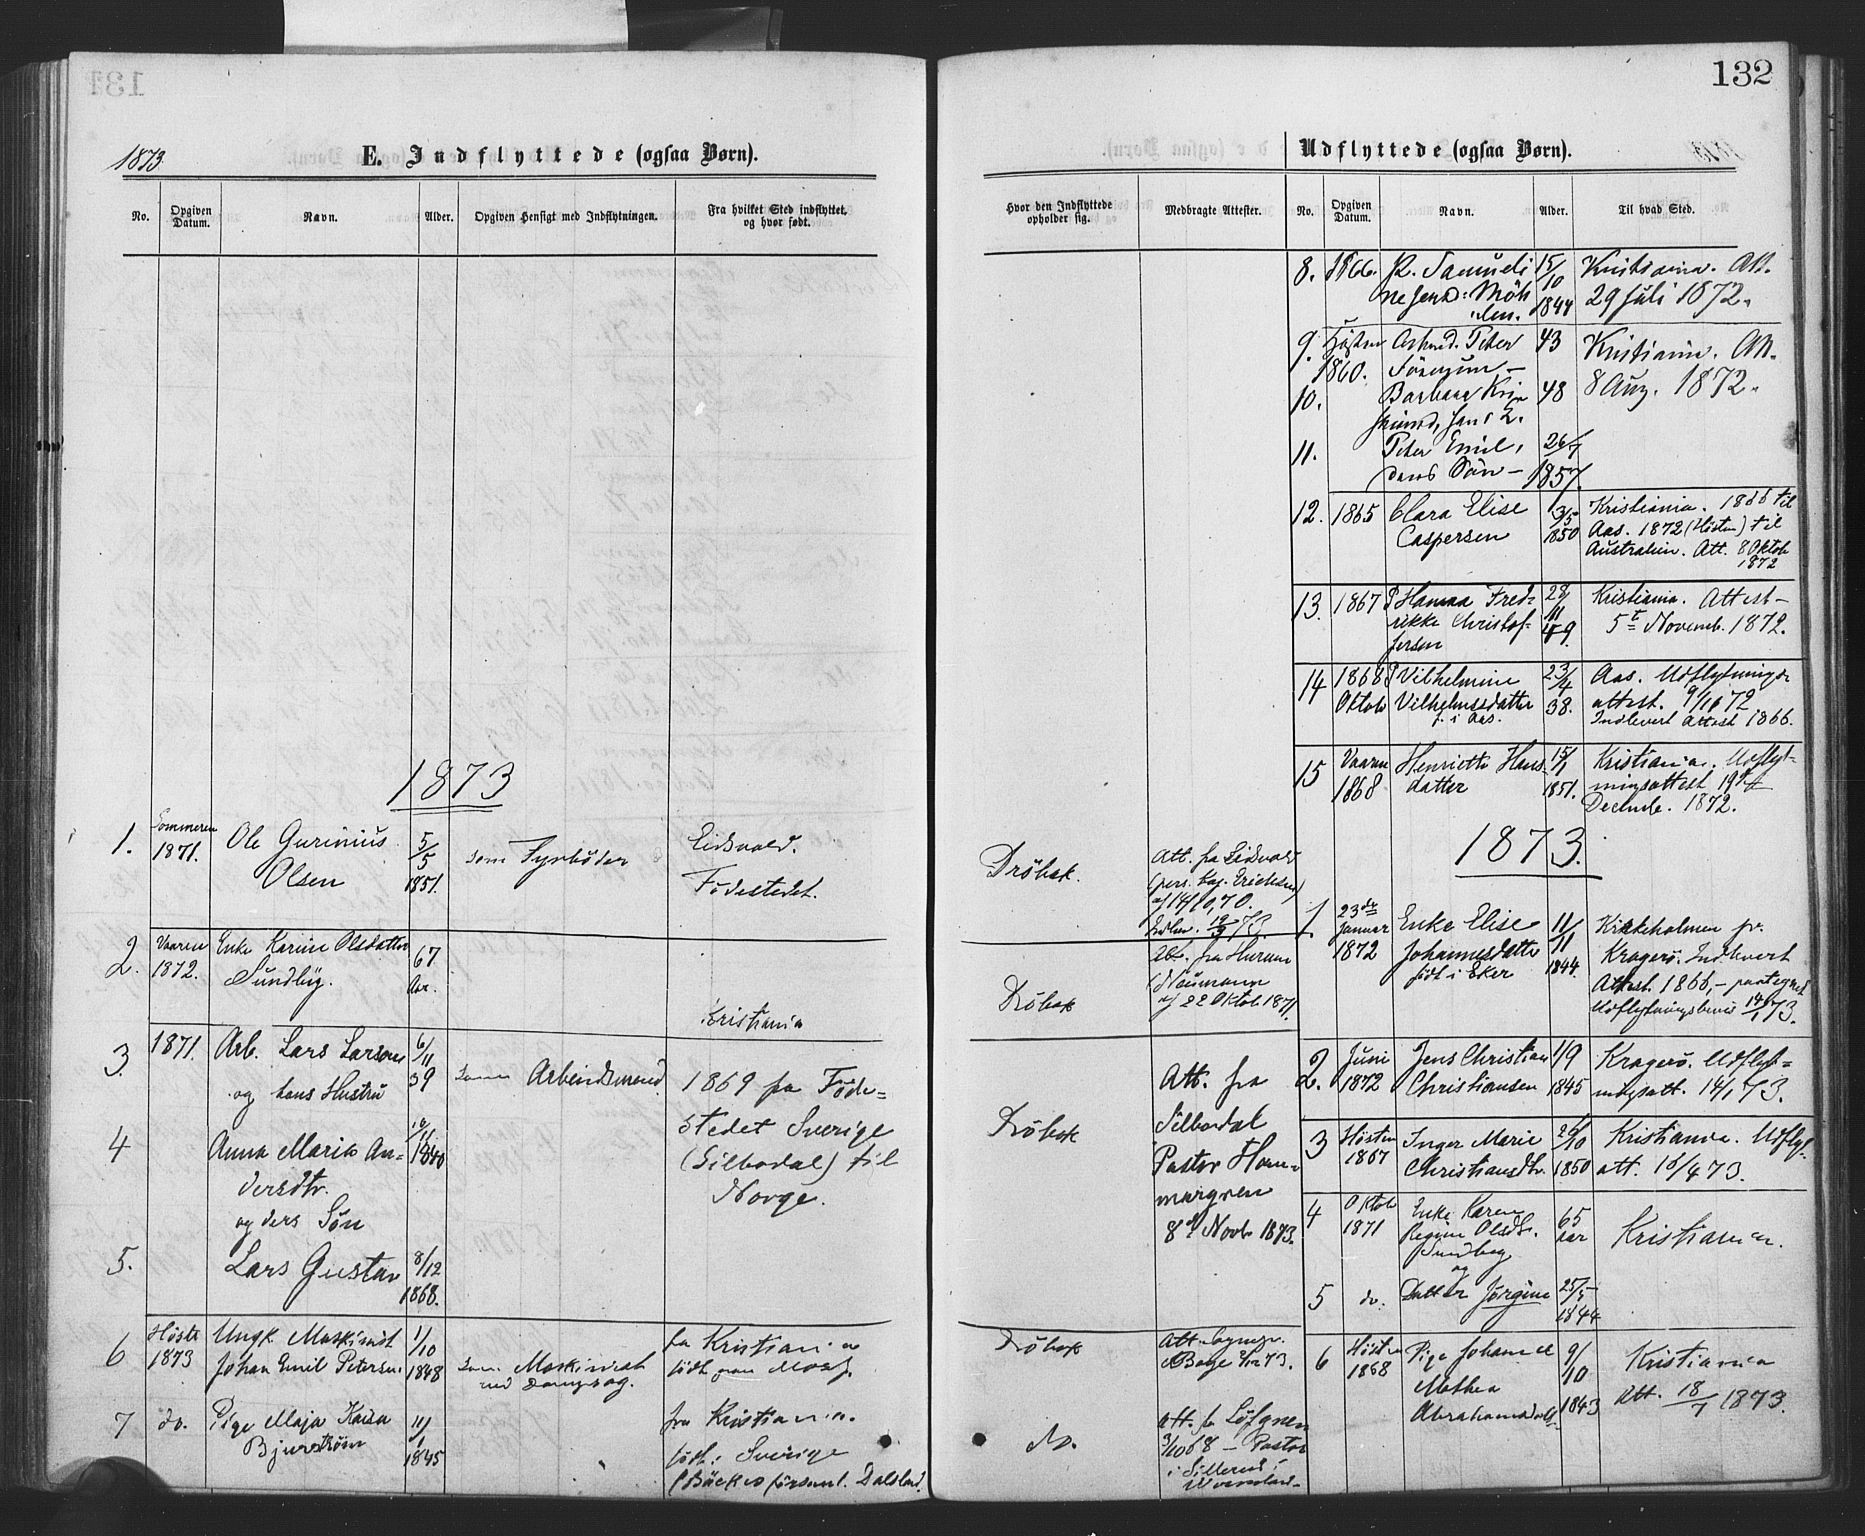 131
1873
E. Indflyttede (ogsaa Børn).
No.
Opgiven
Datum.
Navn.
Alder.
Opgiven Hensigt med Indflytningen.
Fra hvilket Sted indflyttet,
og hvor født.
1873
1.
Sommeren
1871.
Ole Gurinius
Olsen
5/5
1851.
som Fyrbøder
Eidsvold.
Födestedet.
2.
Vaaren
1872.
Enke Karine Olsdatter
Sundbÿ.
67
Aar.
Kristiania
3.
1871.
Arb. Lars Larsen
og hans Hustru
6/11
39
som Arbeidsmand
1869 fra Föde=
stedet Sverige
(Silbodal) til
Norge.
4
Anna Maria An=
dersdtr.
og ders Sön
1840
5.
Lars Gustav
8/12
1868.
6
Höst
1873
Ungk. Maskinist
Johan Emil Petersen.
1/10
1848
som Maskinist
ved Dampsag.
fra Kristiania
födt paa Moss.
7
do.
Pige Maja Kaisa
Bjurström
11/1
1845
fra Kristiania.
födt: Sverige
(Bäcke församl. Dalsland.
132
Udflyttede (ogsaa Børn).
Hvor den Indflyttede
opholder sig.
Medbragte Attester.
No.
Opgiven
Datum.
Navn.
Alder.
Til hvad Sted.
8.
1866.
P. Samueli
ne Jensd: Möll
15/10
1844
Kristiania. Att.
29 Juli 1872.
9.
Hösten
1860.
Arbmd. Peter
43
Kristiania. Att.
8 Aug. 1872.
10.
Barbara Kri
hans H.
48
11.
Peter Emil,
deres Sön –
26/7
1857.
12.
1865
Clara Elise
Caspersen
13/5
1850
Kristiania. 1866 til
Aas. 1872 (Hösten) til
Australien. Att. 8 Oktob
1872
13.
1867
P Hanna Fred=
rikke Christof=
fersen
28/11
49.
Kristiania. Attest–
5t Novemb. 1872.
14
1868
Oktob
P Vilhelmine
Vilhelmsdatter
f. i Aas.
23/4
38.
Aas. Udflytnings
attest. 9/11 72
Indlevert Attest 1866.
15
Vaaren
1868
Henriette Hans
datter
15/1
1851.
Kristiania. Udflyt=
ningsattest 19de
Decemb. 1872.
1873.
Dröbak.
Att. fra Eidsvold
(pers. Kap. Erichsen)
af 14/10, 70.
Indlev. 73.
1.
23de
Januar
1872
Enke Elise
Johannesdatter
födt i Eker
11/11
1844.
Kirkeholmen pr.
Kragerö. Indlevert
Attest. 1866, – paategnet
Udflytningsbevis 14/1 73.
Dröbak
Att. fra Hurum
(Naumann
af 22 Oktob. 1871.
2.
Juni
1872
Jens Christian
Christiansen
1/9
1845
Kragerö. Udflyt=
ningsatt. 14/1 73.
Dröbak
Att. fra
Silbodal
Pastor Ham=
margren
8de Novb 1873.
3
Hösten
1867
Inger Marie
Christiansdtr.
28/10
1850
Kristiania. Udflyt
att. 16/4 73.
4
Oktob
1871
Enke Karen
Regine Olsdtr.
Sundbÿ
og
65
Aar
Kristiania.
5
do.
Datter Jörgine
25/5
1844
Dröbak
Att. Sognepr.
Bage 2/12 73.
6
Hösten
1868
Pige Johanne
Mathea
Abrahamsdatt.
9/10
1843
Kristiania
Att. 18/7 1873.
do.
Att. fr Löfgren
3/10 68 – Pastor
i Sillerud i
Wermland–